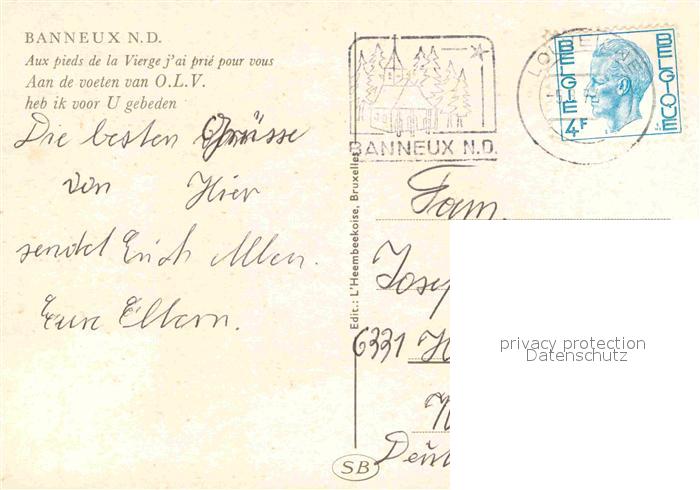 BANNEUX N.D.
Aux pieds de la Vierge j'ai prié pour vous
Aan de voeten van O.L.V.
heb ik voor U gebeden
Die besten Grüsse
von Hier
sendet Euch Allen.
Eure Eltern.
BANNEUX N.D.
BELGIE BELGIQUE
4F
Edit.: L'Heembeekoise, Bruxelles
Fam.
Josep
6331 H
privacy protection
Datenschutz
SB